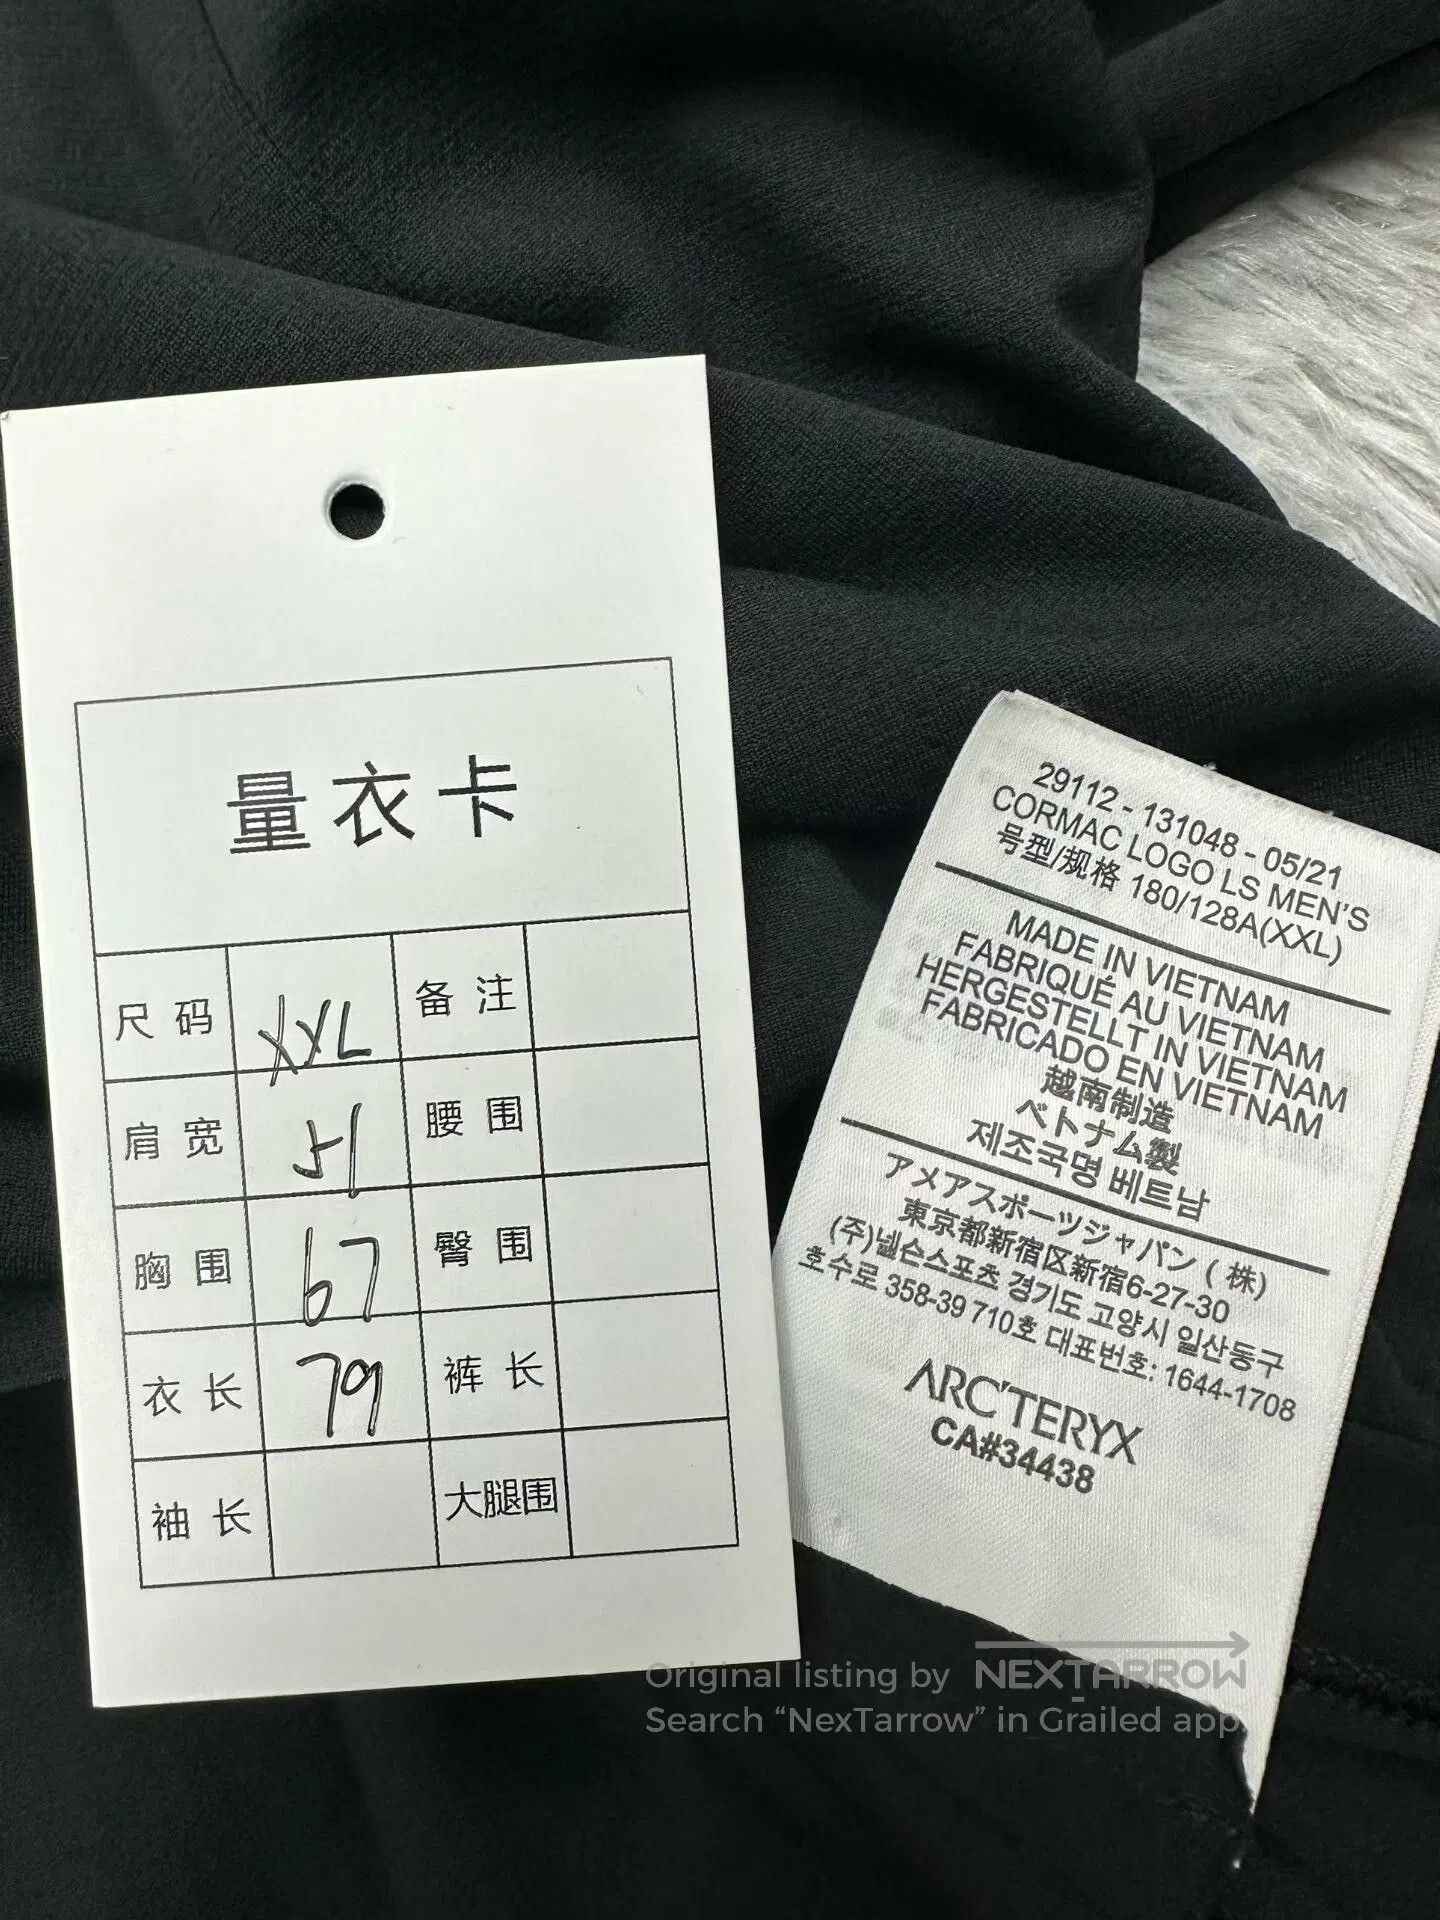 量衣卡
尺码 XXL 备注
肩宽 51 腰围
胸围 67 臀围
衣长 79 裤长
袖长 大腿围
29112 - 131048 - 05/21
CORMAC LOGO LS MEN'S
号型/规格 180/128A(XXL)
MADE IN VIETNAM
FABRIQUÉ AU VIETNAM
HERGESTELLT IN VIETNAM
FABRICADO EN VIETNAM
越南制造
ベトナム製
제조국명 베트남
アメアスポーツジャパン ( 株)
東京都新宿区新宿6-27-30
(주)넬슨스포츠 경기도 고양시 일산동구
호수로 358-39 710호 대표번호: 1644-1708
ARC'TERYX
CA#34438
Original listing by NEXTARROW
Search “NexTarrow” in Grailed app.